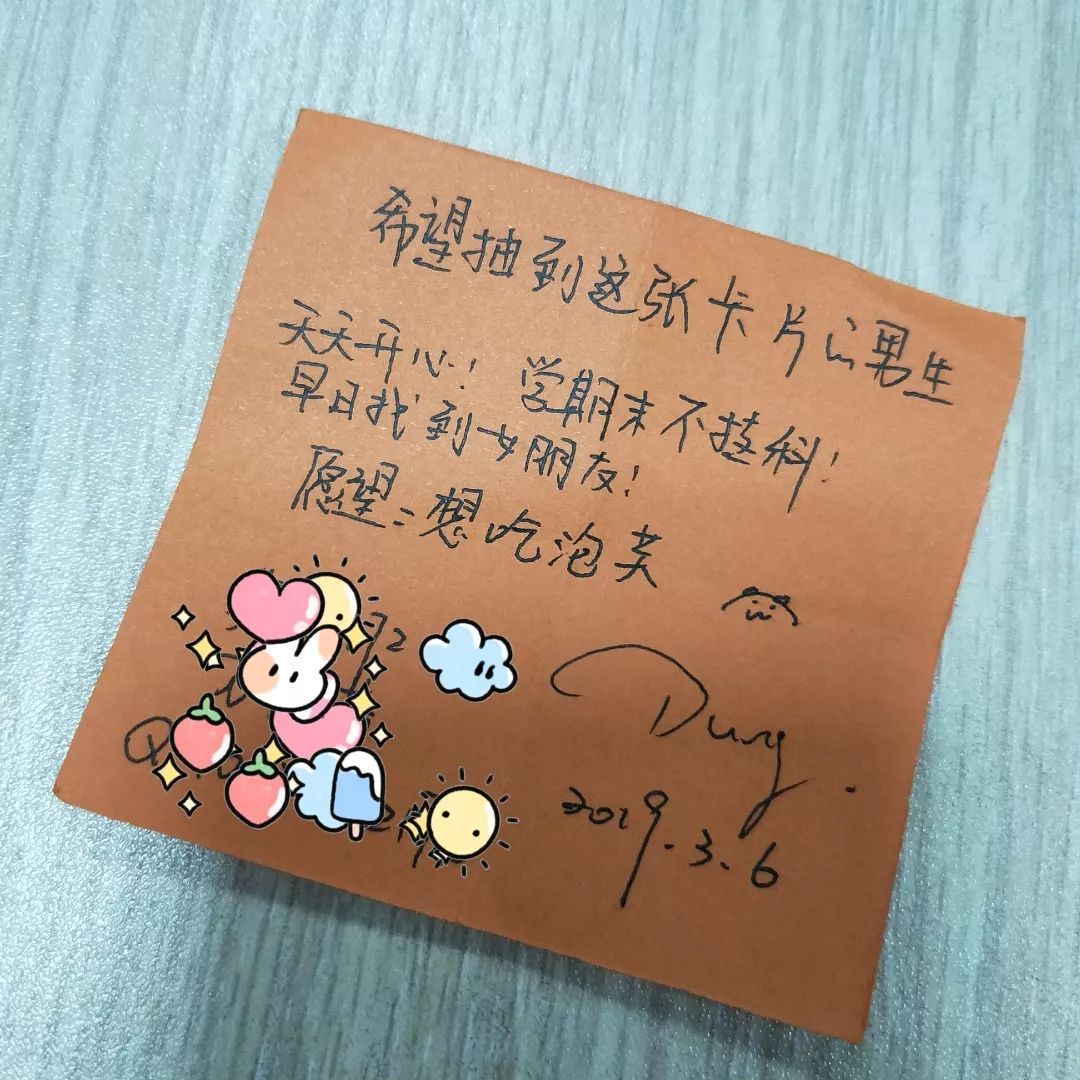 希望抽到这张卡片的男生
天天开心! 学期末不挂科!
早日找到女朋友!
愿望:想吃泡芙
Dung.
2019.3.6